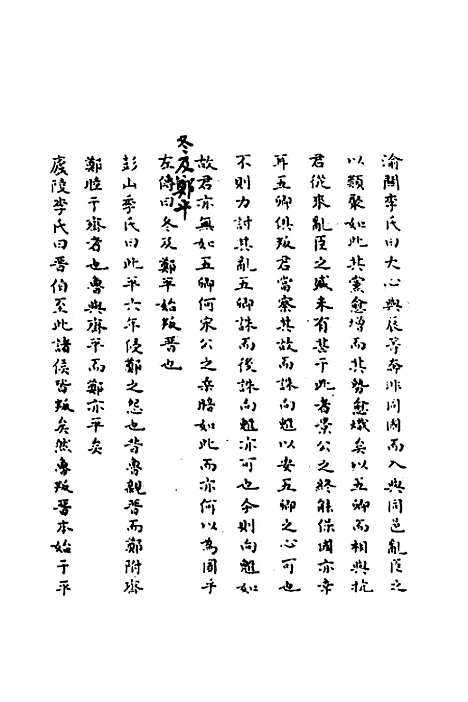 渝關李氏曰大心與辰等奔非同國而入與同邑亂臣之
以類聚如此其黨愈增而其勢愈熾矣以五卿而相與抗
君從來亂臣之盛未有甚于此者景公之終能保國亦幸
耳五卿俱叛君當察其故而誅向魋以安五卿之心可也
不則力討其亂五卿誅而後誅向魋亦可也今則向魋如
故君亦無如五卿何宋公之柔暗如此而亦何以為國乎
冬及鄭平
左傳曰冬及鄭平始叛晉也
彭山季氏曰此平六年侵鄭之怨也昔魯親晉而鄭附齊
鄭睦于齊者也魯與齊平而鄭亦平矣
廬陵李氏曰晉伯至此諸侯皆叛矣然魯叛晉本始于平